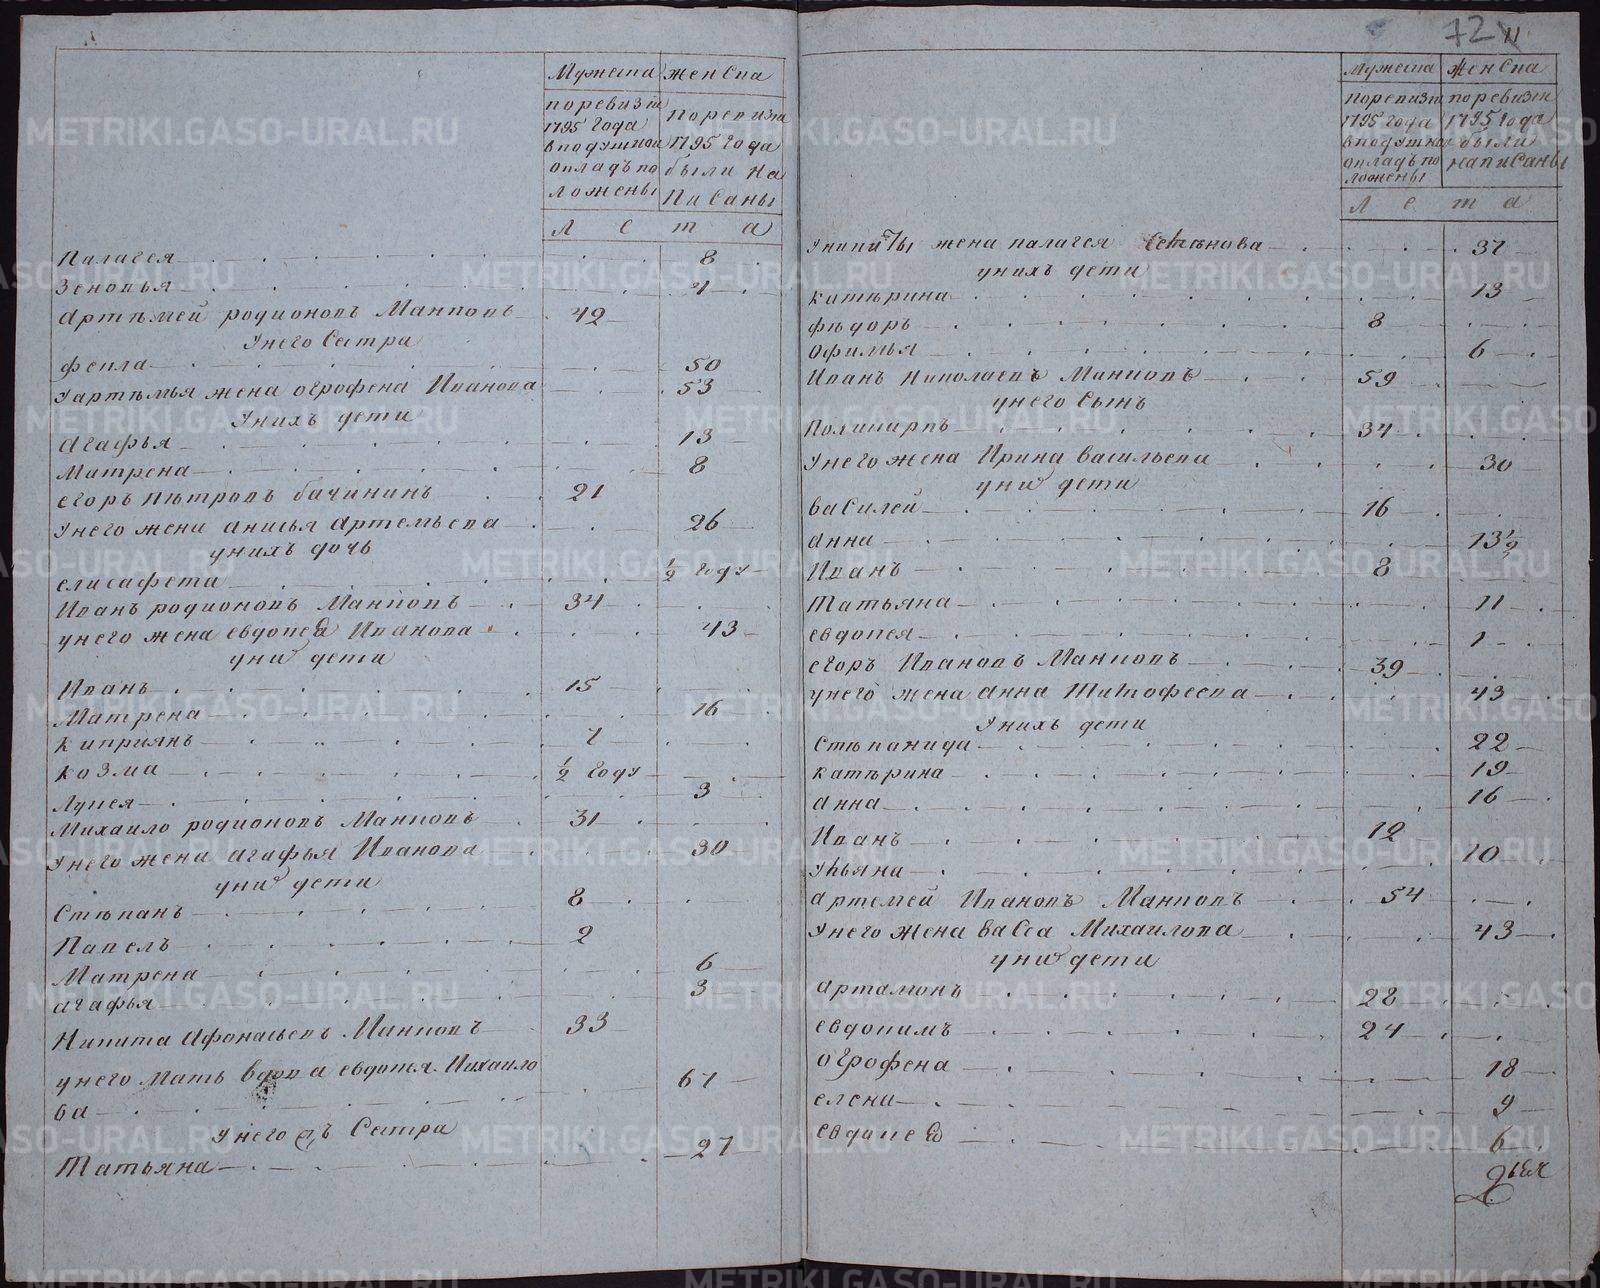 72 11
Мужеска Женска
поревизiи
1795 года
вподушной
окладъ по
ложены
Поревизiи
1795 года
были на
писаны
Лета
Палагея 8
Зеновья 4
Артѣмей родионовъ Манковъ 42
Унего Сестра
Фекла 50
Уартѣмья жена огрофена Иванова 53
Унихъ дети
Агафья 13
Матрена 8
егоръ пѣтровъ бачининъ 21
Унего жена анисья Артемьева 26
унихъ дочь
елисафета ½ году
Иванъ родионовъ Манковъ 34
унего жена евдокея Иванова 43
уних дети
Иванъ 15
Матрена 16
Киприянъ 7
козма ½ году
Лукея 3
Михаило родионовъ Манковъ 31
Унего жена агафья Иванова 30
уних дети
Стѣпанъ 8
Павелъ 2
Матрена 6
агафья 3
Никита Афонасьевъ Манковъ 33
унего Мать вдова евдотья Михаило
ва 67
Унего съ Сестра
Татьяна 27
Мужеска Женска
поревизiи
1795 года
вподушной
окладъ по
ложены
поревизiи
1795 года
были
написаны
Лета
Уникиты жена палагея Степанова 37
унихъ дети
катѣрина 13
фѣдоръ 8
Офимья 6
Иванъ Николаевъ Манковъ 59
унего Сынъ
Поликарпъ 34
Унего жена Ирина васильева 30
уних дети
василей 16
анна 13½
Иванъ 8
Татьяна 11
евдокея 1
егоръ Ивановъ Манковъ 39
унего жена анна Тимофеева 43
Унихъ дети
Стѣпанида 22
катѣрина 19
анна 16
Иванъ 12
Ульяна 10
артемей Ивановъ Манковъ 54
Унего жена васса Михаилова 43
уних дети
артамонъ 28
евдокимъ 24
огрофена 18
елена 9
евдокея 6